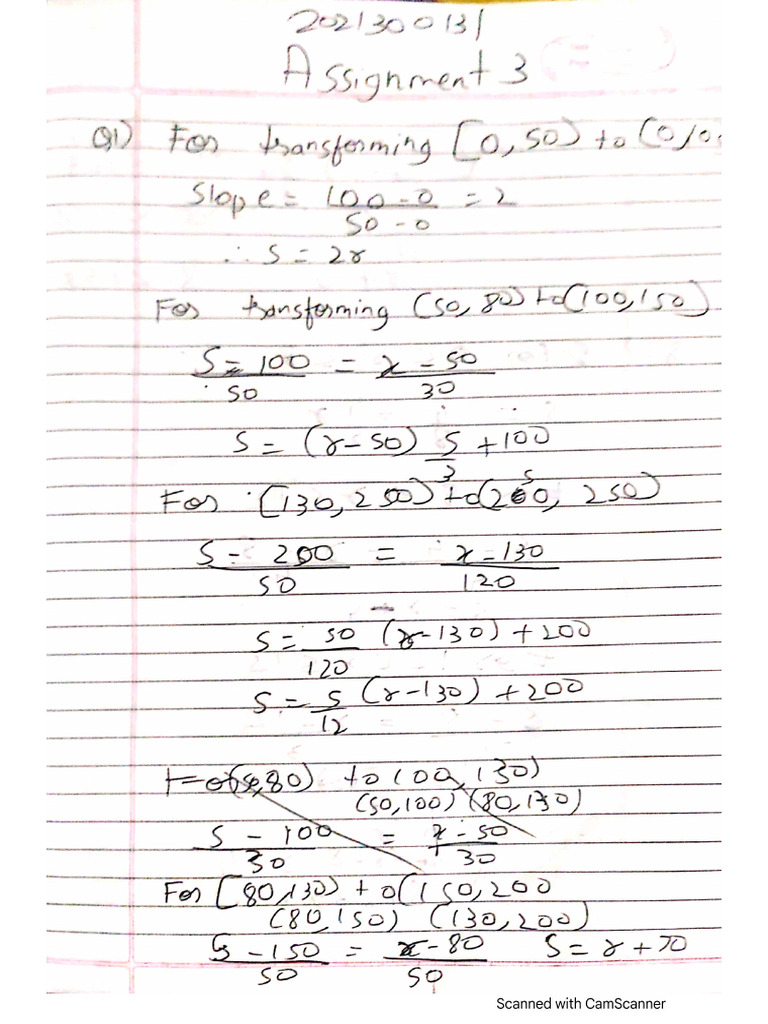 2021300131
Assignment 3
Q1) For transforming [0, 50) to (0,0
Slope = 100-0 = 2
50-0
∴ S = 2r
For transforming (50, 80) to (100,150)
S - 100 = r - 50
50 30
S = (r-50) 5 + 100
3
For [130, 250) to (200, 250)
S - 200 = r - 130
50 120
S = 50 (r-130) + 200
120
S = 5 (r-130) + 200
12
to (100, 130)
(50,100) (80,130)
S - 100 = r - 50
30 30
For [80,130) to (150,200
(80,150) (130,200)
S - 150 = r - 80 S = r + 70
50 50
Scanned with CamScanner